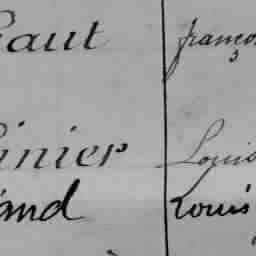 Gaut franço
inier Louis
and Louis